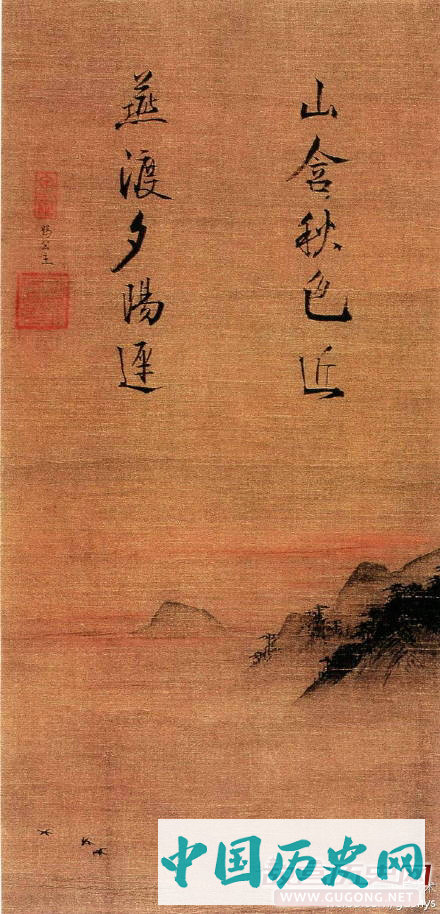 山含秋色近
燕渡夕陽遲
賜公主
中国历史网
WWW.GUGONG.NET